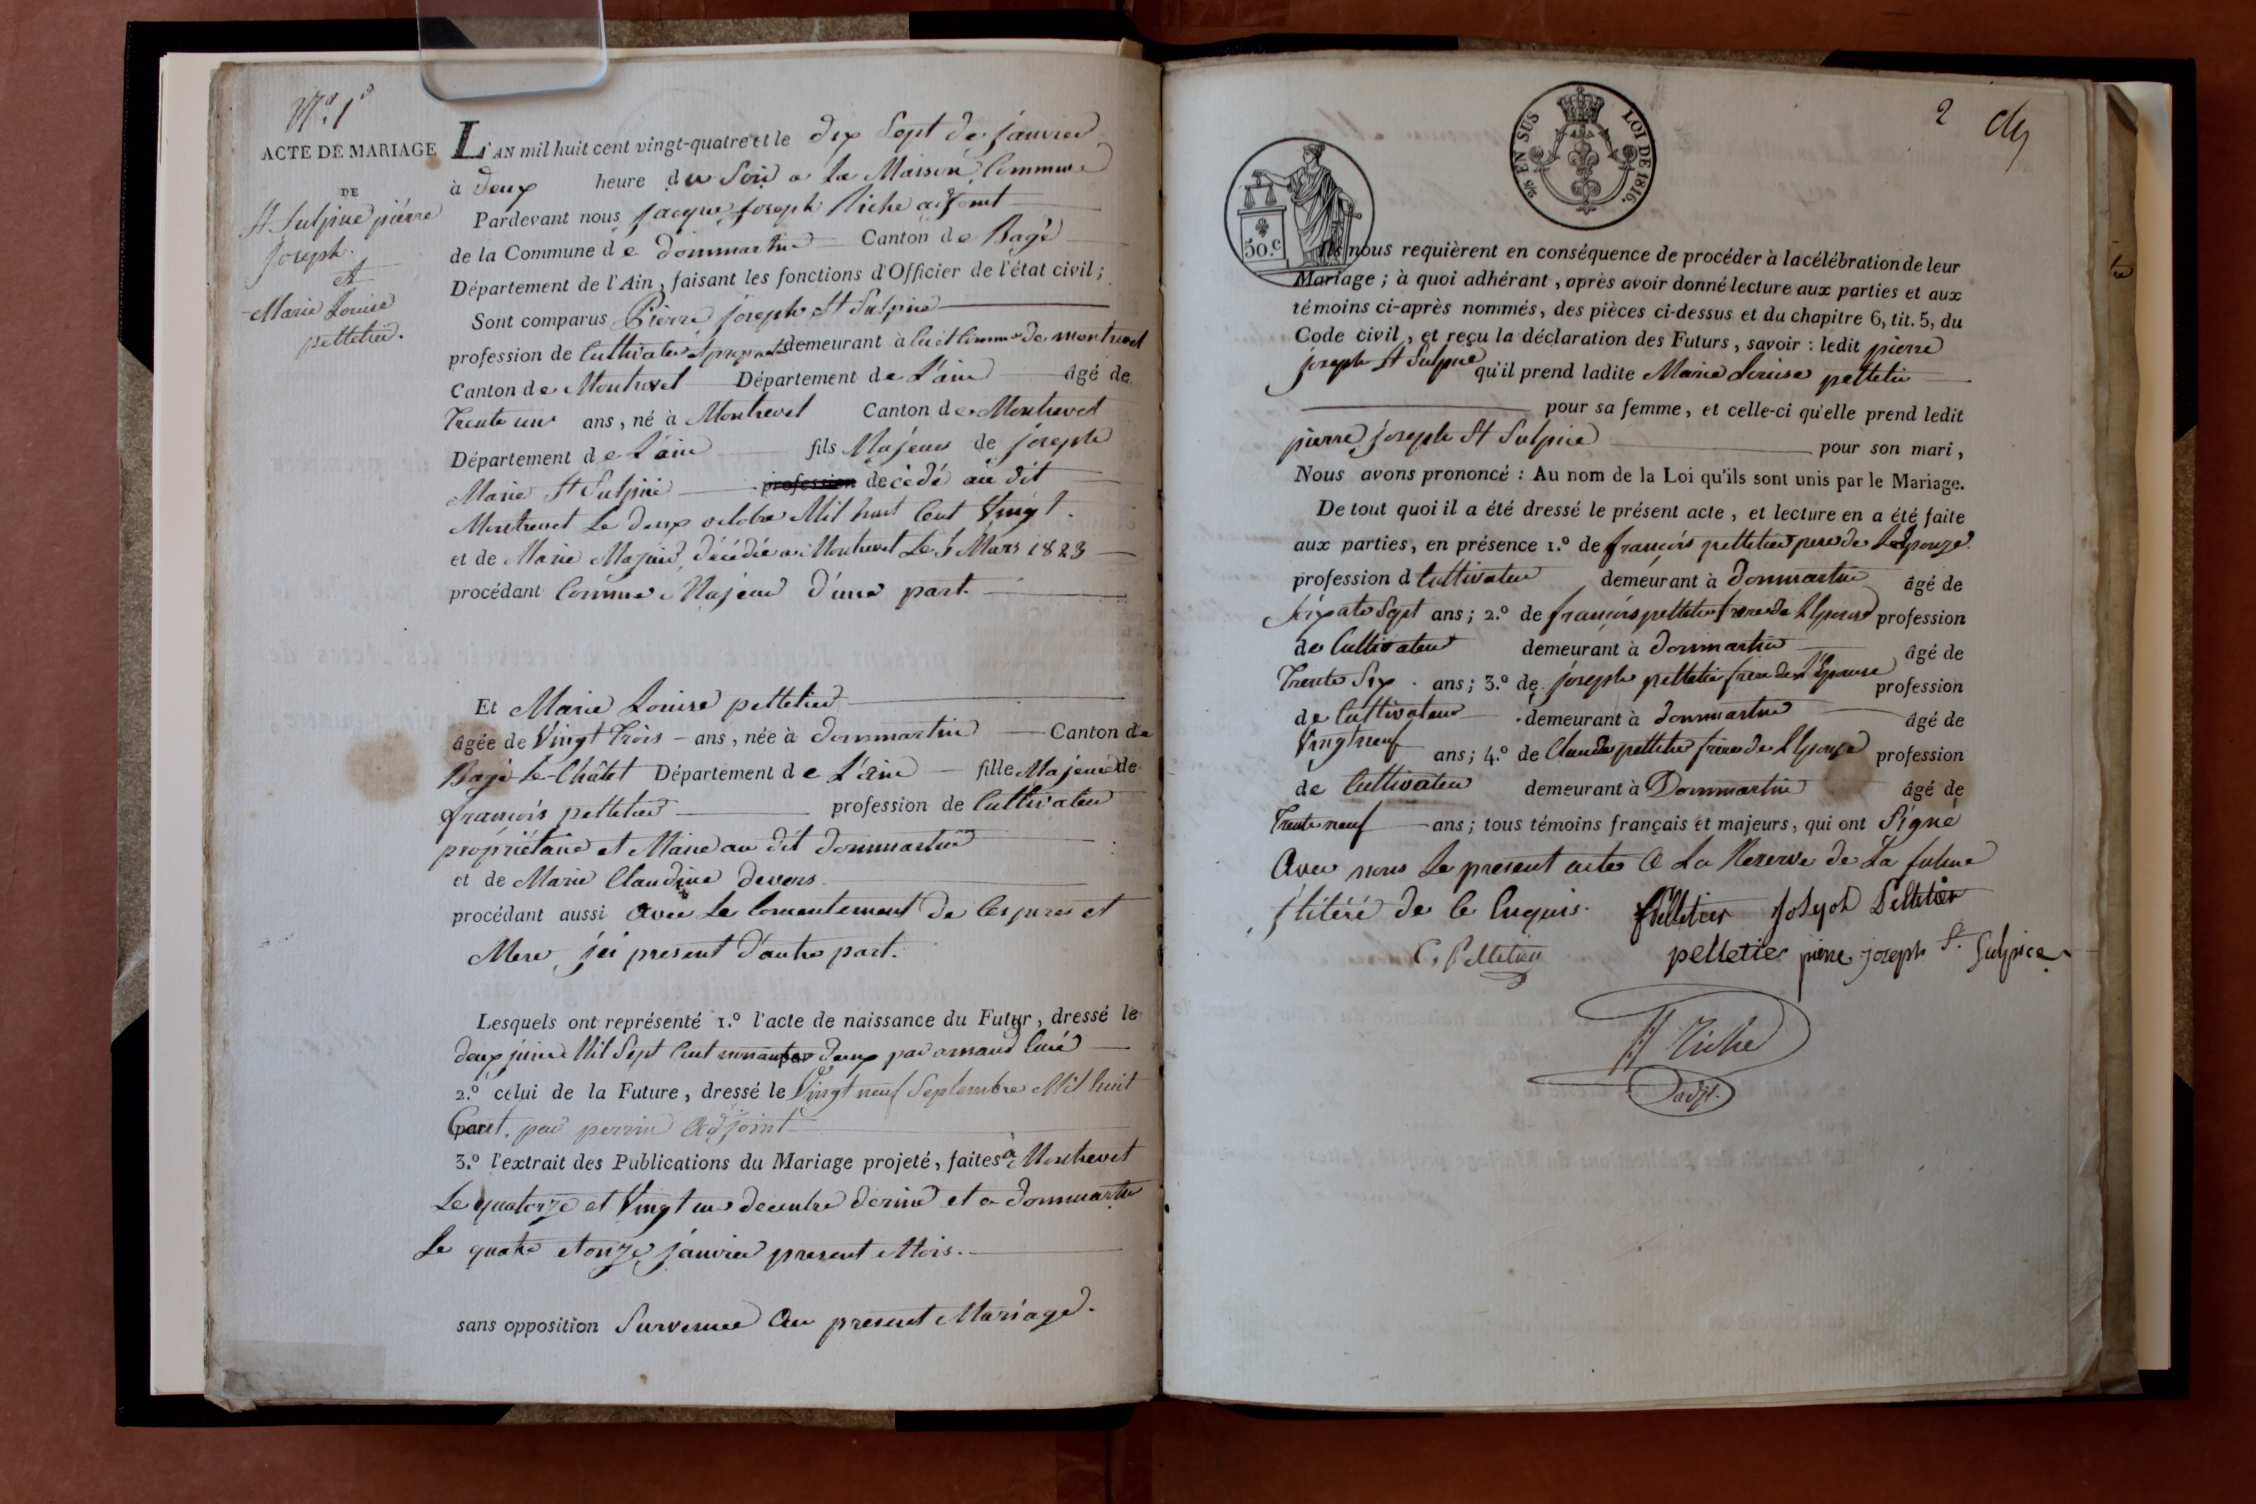 N.° 1.°
ACTE DE MARIAGE
DE
St Sulpice pierre
joseph.
et
Marie Louise
pelletier.
L'AN mil huit cent vingt-quatre et le dix Sept de janvier
à deux heure du Soir a la Maison Commune
Pardevant nous jacque joseph Riche adjoint
de la Commune de dommartin Canton de Bagé
Département de l'Ain, faisant les fonctions d'Officier de l'état civil;
Sont comparus Pierre joseph St Sulpice
profession de Cultivateur et demeurant à de montrevel
Canton de Montrevel Département de L'ain âgé de
Trente un ans, né à Montrevel Canton de Montrevel
Département de L'ain fils Majeur de joseph
Marie St Sulpice profession décèdé au dit
Montrevel Le deux octobre Mil huit Cent Vingt.
et de Marie décédée a Montrevel Le Mars 1823
procédant Comme Majeur d'une part.
Et Marie Louise pelletier
âgée de Vingt Trois ans, née à dommartin Canton de
Bagé Le Châtel Département de L'ain fille Majeure de
françois pelletier profession de Cultivateur
propriétaire et Maire au dit dommartin
et de Marie Claudine devers
procédant aussi avec Le Consentement de Ces pere et
Mere, ici present d'autre part.
Lesquels ont représenté 1.° l'acte de naissance du Futur, dressé le
deux juin Mil Sept Cent nonante deux par arnaud Curé
2.° celui de la Future, dressé le Vingt neuf Septembre Mil huit
Cent par perrin adjoint
3.° l'extrait des Publications du Mariage projeté, faites à Montrevel
Le quatorze et Vingt un decembre dernier et a dommartin
Le quatre et onze janvier present Mois.
sans opposition Survenue au present Mariage.
2
28 EN SUS LOI DE 1816.
50.c
Ils nous requièrent en conséquence de procéder à la célébration de leur
Mariage; à quoi adhérant, après avoir donné lecture aux parties et aux
témoins ci-après nommés, des pièces ci-dessus et du chapitre 6, tit. 5, du
Code civil, et reçu la déclaration des Futurs, savoir: ledit pierre
joseph St Sulpice qu'il prend ladite Marie Louise pelletier
pour sa femme, et celle-ci qu'elle prend ledit
pierre joseph St Sulpice pour son mari,
Nous avons prononcé: Au nom de la Loi qu'ils sont unis par le Mariage.
De tout quoi il a été dressé le présent acte, et lecture en a été faite
aux parties, en présence 1.° de françois pelletier pere de L'Epouze
profession d Cultivateur demeurant à dommartin âgé de
Soixante Sept ans; 2.° de françois pelletier frere de L'Epouse profession
de Cultivateur demeurant à dommartin âgé de
Trente Six ans; 3.° de joseph pelletier frere de L'Epouse profession
de Cultivateur demeurant à dommartin âgé de
Vingt neuf ans; 4.° de Claude pelletier frere de L'Epouse profession
de Cultivateur demeurant à Dommartin âgé de
Trente neuf ans; tous témoins français et majeurs, qui ont Signé
Avec nous Le present acte a La Reserve de La future
illitéré de ce Enquis. Pelletier Joseph Pelletier
C. Pelletier pelletier pierre joseph St. Sulpice
Riche
adjt.